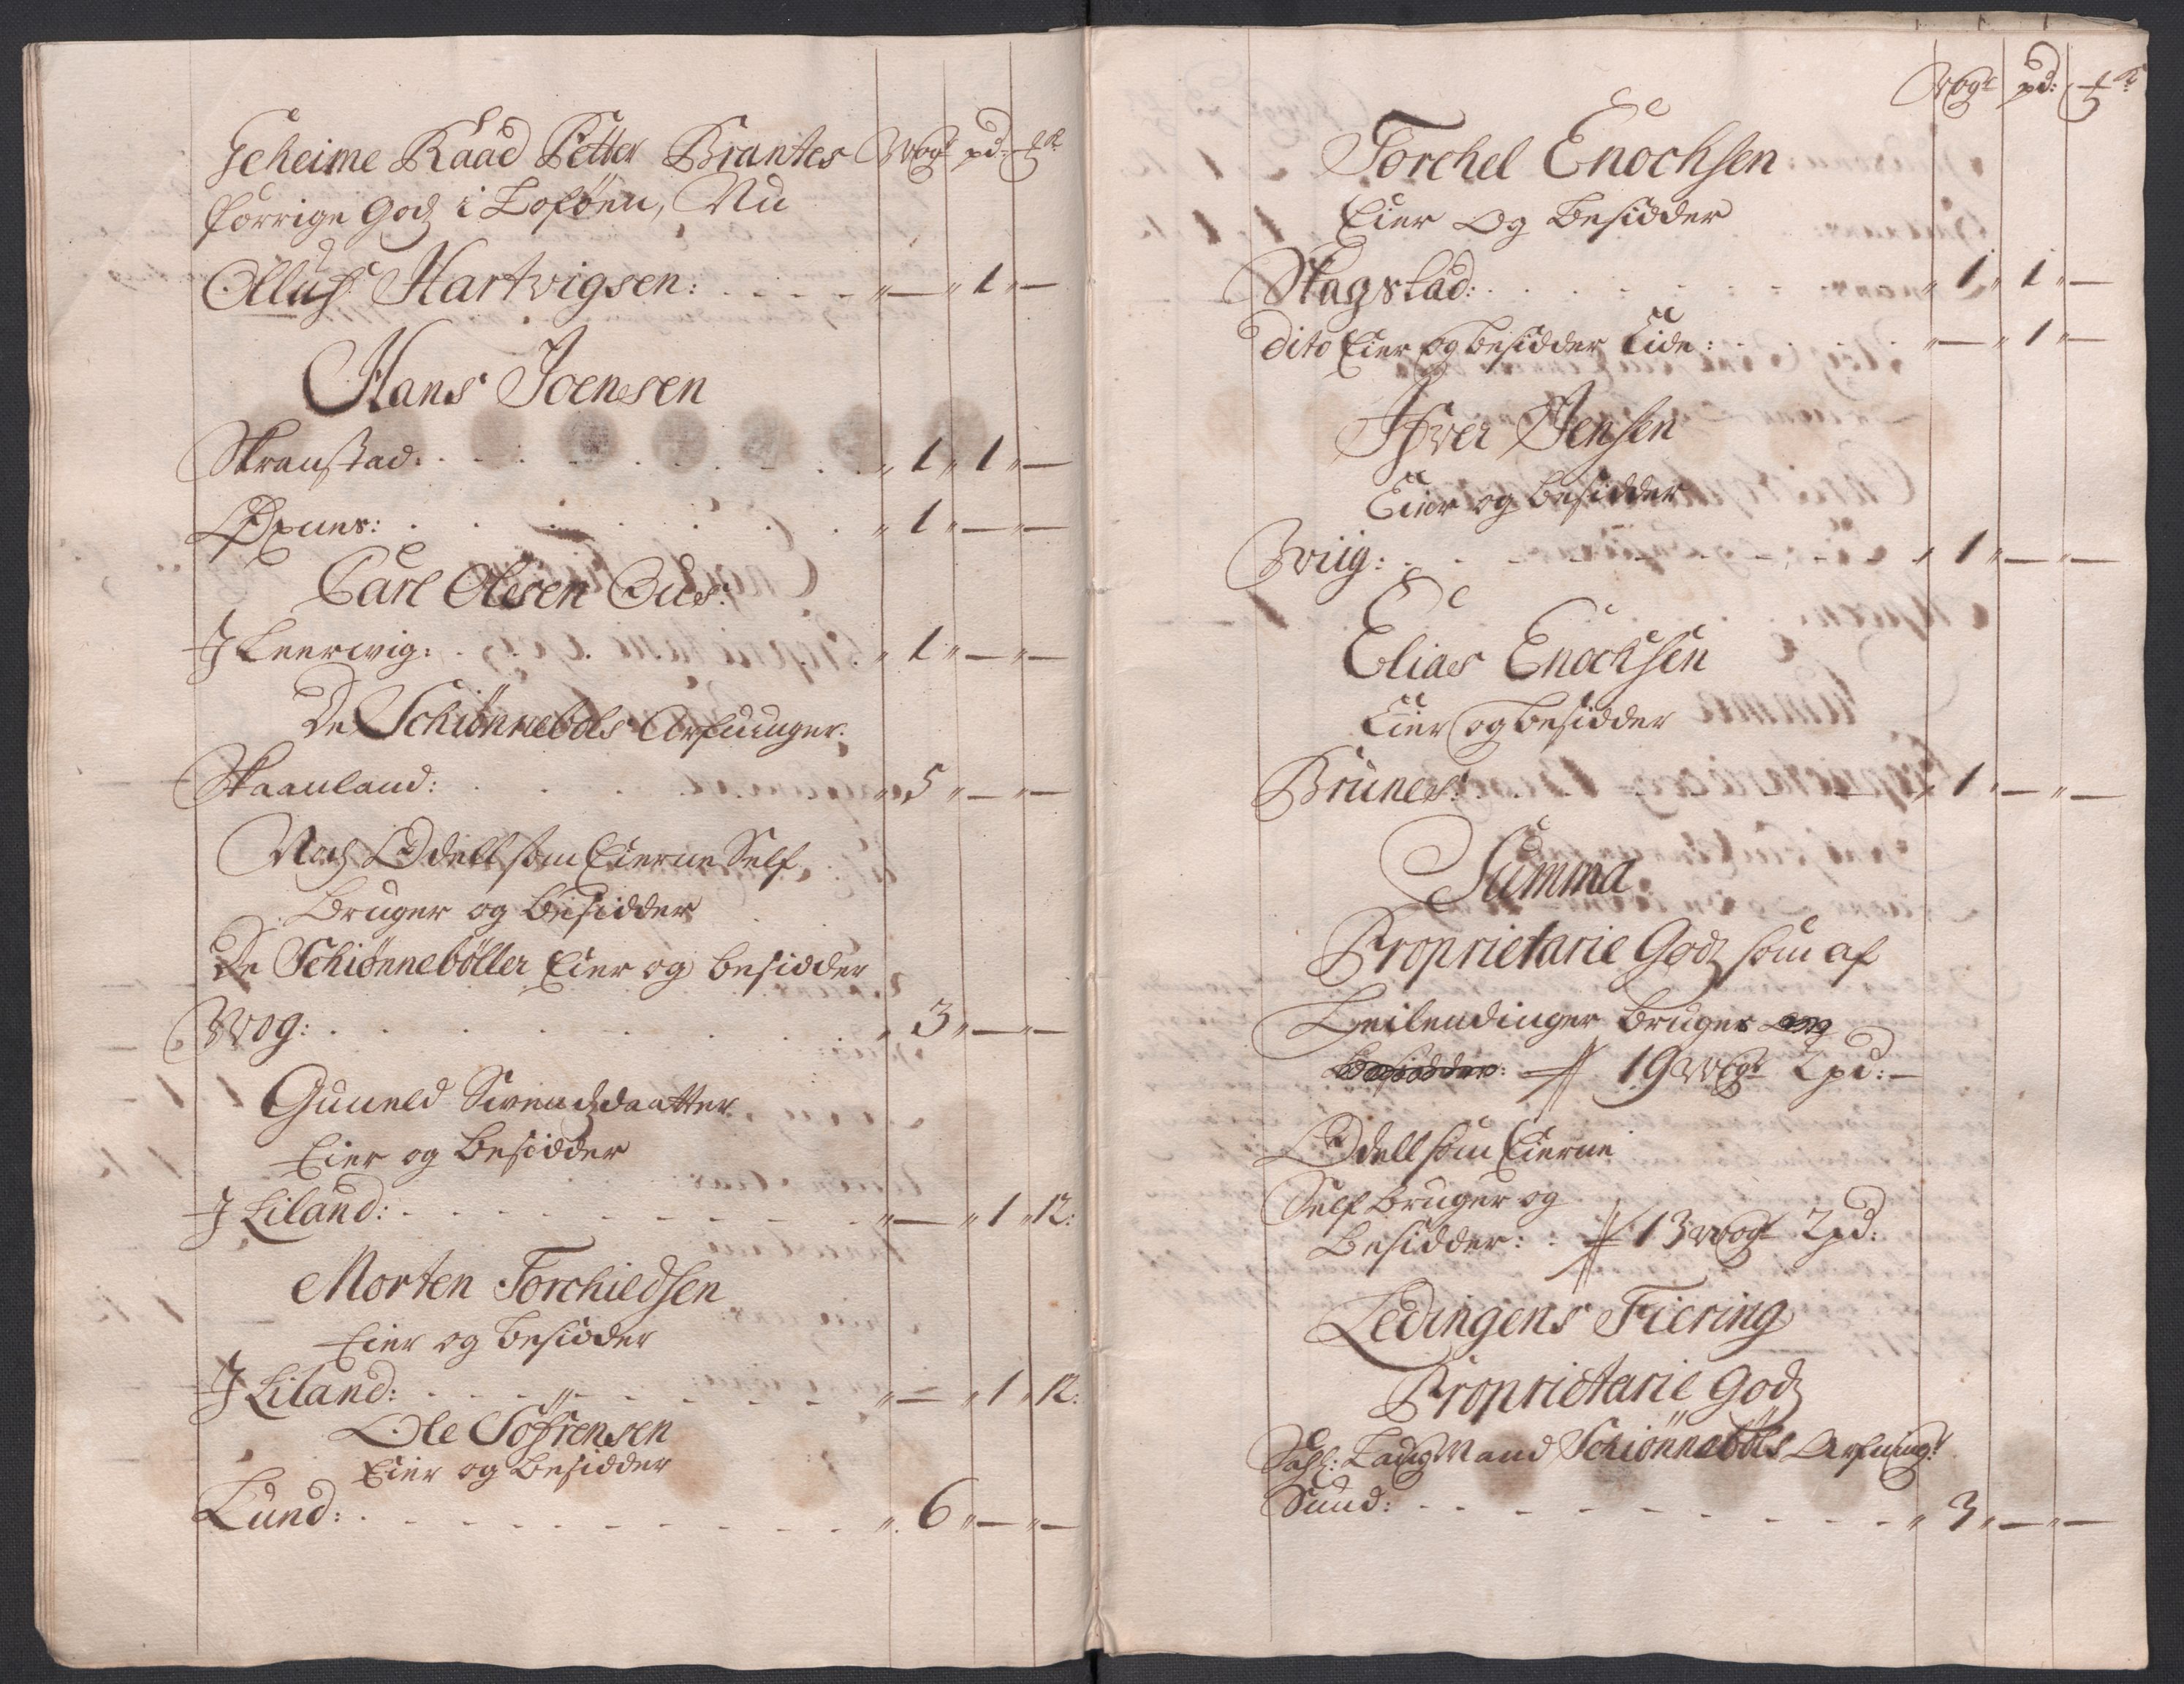 Geheime Raad Petter Brantes Wog pd: ℔r
forrige Godz i Lofoen, Nu
Olluf Hartvigsen: . . . . „ — „ 1 „ —
Hans Joensen
Skranstad: . . . . „ 1 „ 1 „ —
Oxnes: . . . . „ 1 „ — „ —
Carl Olesen Bus:
J Leerwig: . . . . „ 1 „ — „ —
De Schiönnebols Arfuinger:
Skaanland: . . . . „ 5 „ — „ —
Noch Odell som Eierne Self
Bruger og Besidder
De Schiönnebøller Eier og besidder
Wog: . . . . „ 3 „ — „ —
Guneld Swendzdaatter
Eier og Besidder
J Liland: . . . . „ — „ 1 „ 12:
Morten Torchildsen
Eier og besidder
J Liland: . . . . „ — „ 1 „ 12:
Ole Söfrensen
Eier og Besidder
Lund: . . . . „ 6 „ — „ —
Wogr pd: ℔r
Torchel Enochsen
Eier Og Besidder
Stagstad: . . . . „ 1 „ 1 „ —
Dito Eier og besidder Lide: . . . „ — „ 1 „ —
Ifver Jensen
Eier og besidder
Wiig: . . . . „ 1 „ — „ —
Elias Enochsen
Eier og besidder
Brunes: . . . . „ 1 „ — „ —
Summa
Proprietarie Godz som af
Leilendinger bruges og
Besidder: 19 Wogr 2 pd: —
Odell som Eierne
Self bruger og
Besidder: . 13 Wogr 2 pd:
Lødingens Fiering
Proprietarie Godz
Sahl: Laugmand Schiönnebøls Arfuingr
Sund: . . . . „ 3 „ — „ —